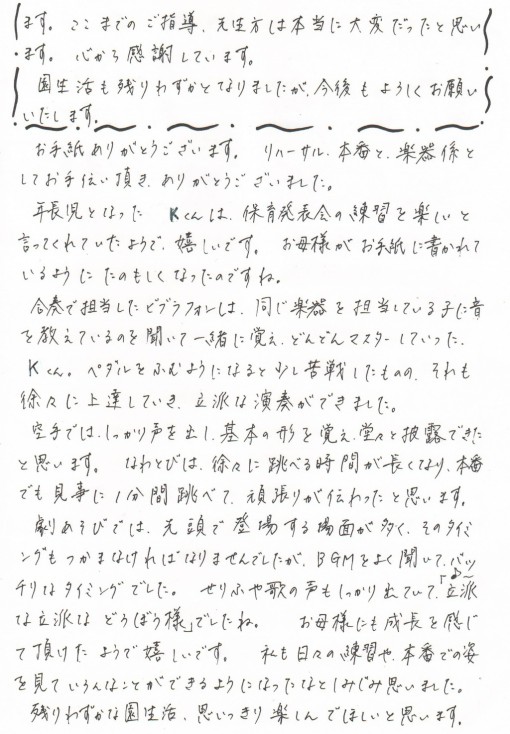 ます。ここまでのご指導、先生方は本当に大変だったと思い
ます。心から感謝しています。
園生活も残りわずかとなりましたが、今後もよろしくお願い
いたします。
お手紙ありがとうございます。リハーサル、本番と、楽器係と
してお手伝い頂き、ありがとうございました。
年長児となった Kくんは、保育発表会の練習を楽しいと
言ってくれていたようで、嬉しいです。お母様がお手紙に書かれて
いるように たのもしくなったのですね。
合奏で担当したビブラフォンは、同じ楽器を担当している子に音
を教えているのを聞いて一緒に覚え、どんどんマスターしていった、
Kくん。ペダルをふむようになると少し苦戦したものの、それも
徐々に上達していき、立派な演奏ができました。
空手では、しっかり声を出し、基本の形を覚え、堂々と披露できた
と思います。なわとびは、徐々に跳べる時間が長くなり、本番
でも見事に1分間跳べて、頑張りが伝わったと思います。
劇あそびでは、先頭で登場する場面が多く、そのタイミ
ングもつかまなければなりませんでしたが、BGMをよく聞いて、バッ
チリなタイミングでした。せりふや歌の声もしっかり出ていて、「♪立派〜
な立派な どろぼう様」でしたね。お母様にも成長を感じ
て頂けたようで嬉しいです。私も日々の練習や、本番での姿
を見ていろんなことができるようになったなとしみじみ思いました。
残りわずかな園生活、思いっきり楽しんでほしいと思います。